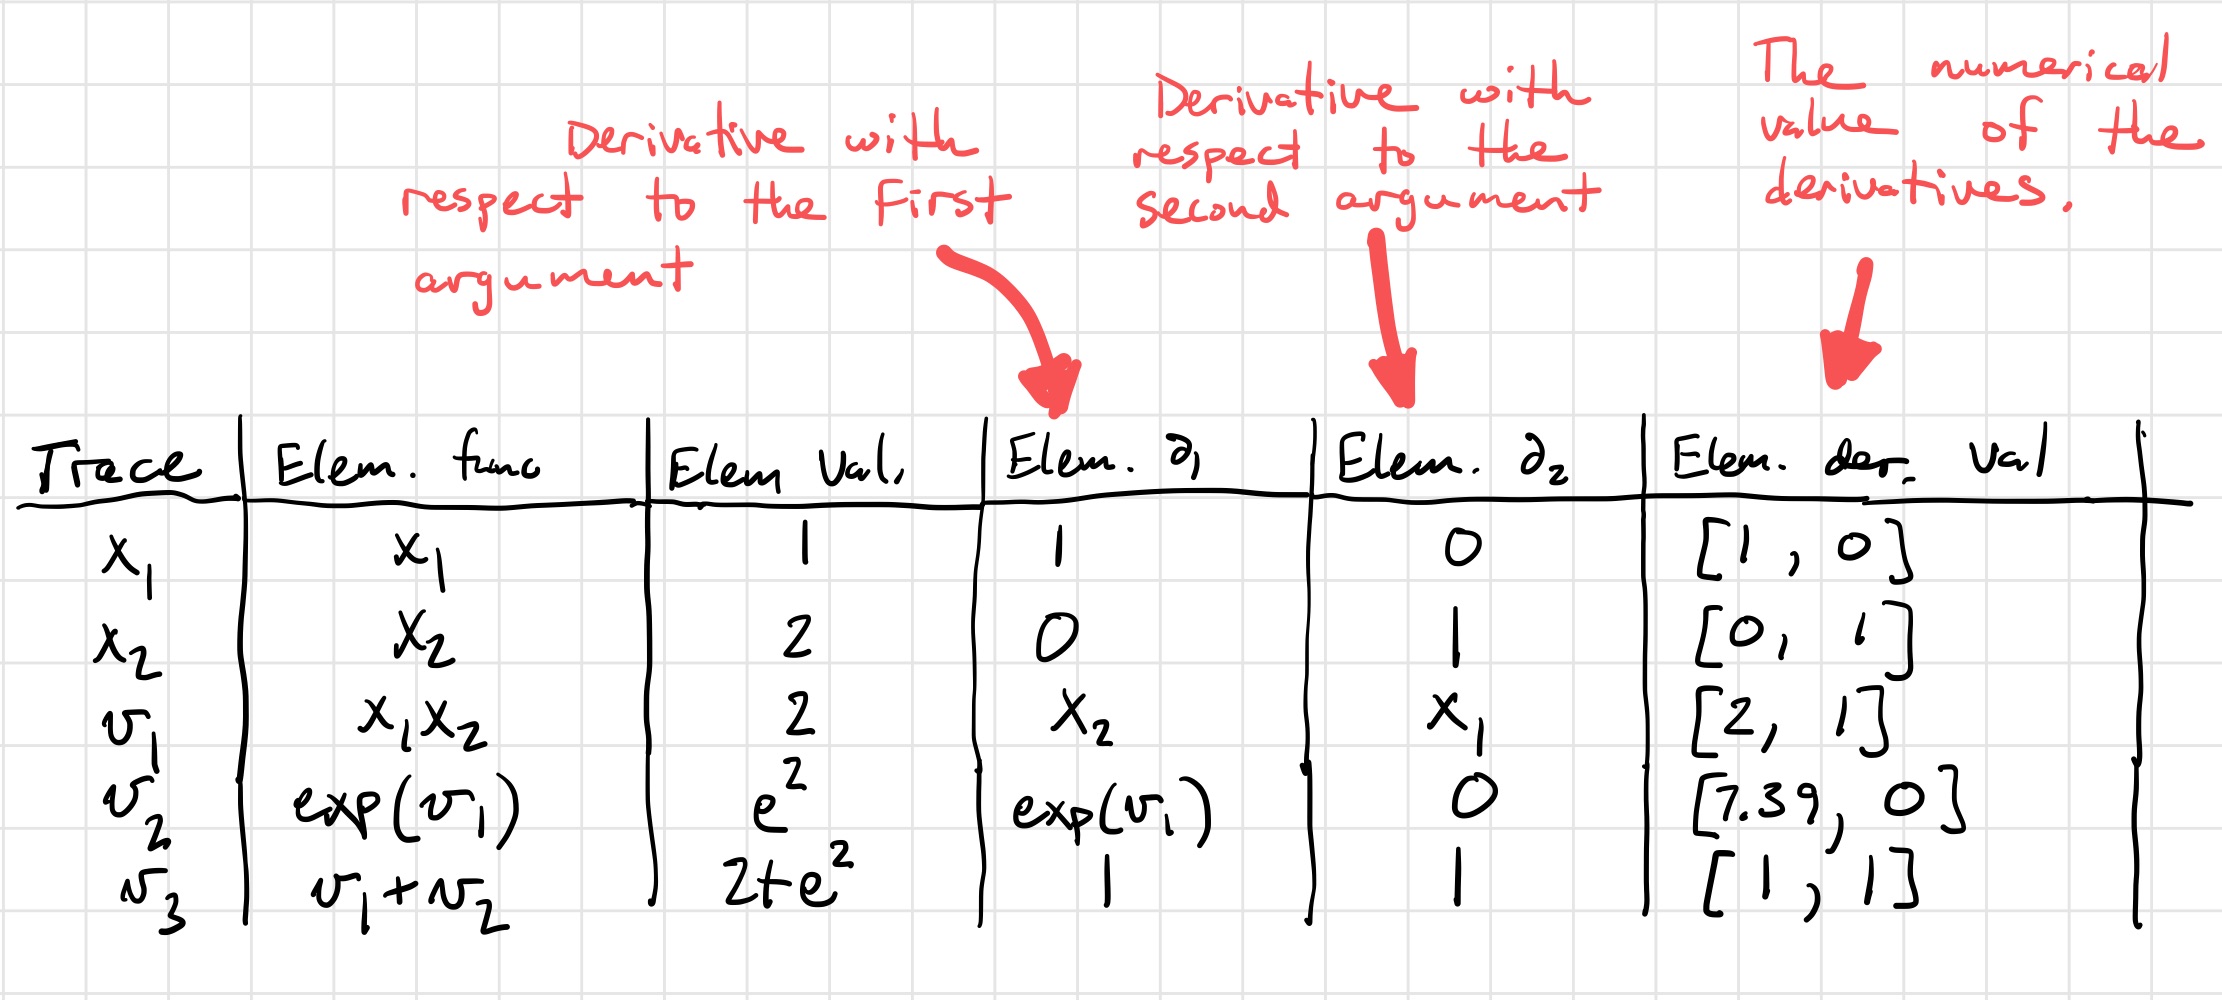 Derivative with
respect to the first
argument
Derivative with
respect to the
second argument
The numerical
value of the
derivatives.
Trace Elem. func Elem Val. Elem. ∂₁ Elem. ∂₂ Elem. der. Val
x₁ x₁ 1 1 0 [1, 0]
x₂ x₂ 2 0 1 [0, 1]
v₁ x₁x₂ 2 x₂ x₁ [2, 1]
v₂ exp(v₁) e² exp(v₁) 0 [7.39, 0]
v₃ v₁+v₂ 2+e² 1 1 [1, 1]